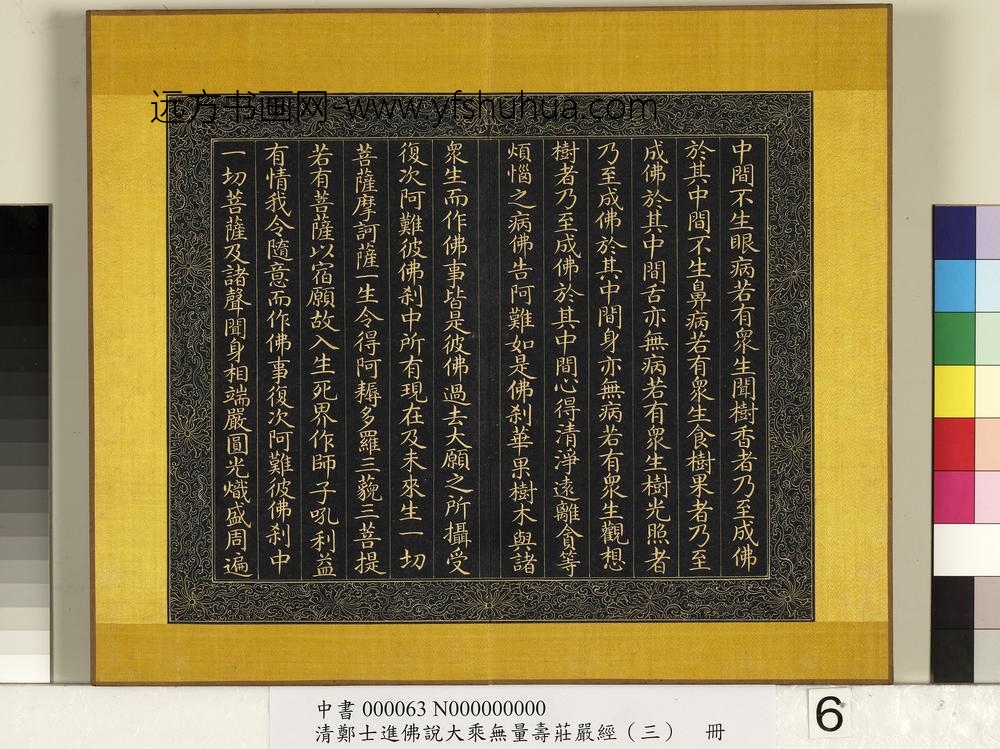 远方书画网-www.yfshuhua.com
中間不生眼病若有衆生聞樹香者乃至成佛
於其中間不生鼻病若有衆生食樹果者乃至
成佛於其中間舌亦無病若有衆生樹光照者
乃至成佛於其中間身亦無病若有衆生觀想
樹者乃至成佛於其中間心得清淨遠離貪等
煩惱之病佛告阿難如是佛刹華果樹木與諸
衆生而作佛事皆是彼佛過去大願之所攝受
復次阿難彼佛刹中所有現在及未來生一切
菩薩摩訶薩一生令得阿耨多羅三藐三菩提
若有菩薩以宿願故入生死界作師子吼利益
有情我令隨意而作佛事復次阿難彼佛刹中
一切菩薩及諸聲聞身相端嚴圓光熾盛周遍
中書 000063 N000000000
清鄭士進佛說大乘無量壽莊嚴經（三） 冊
6